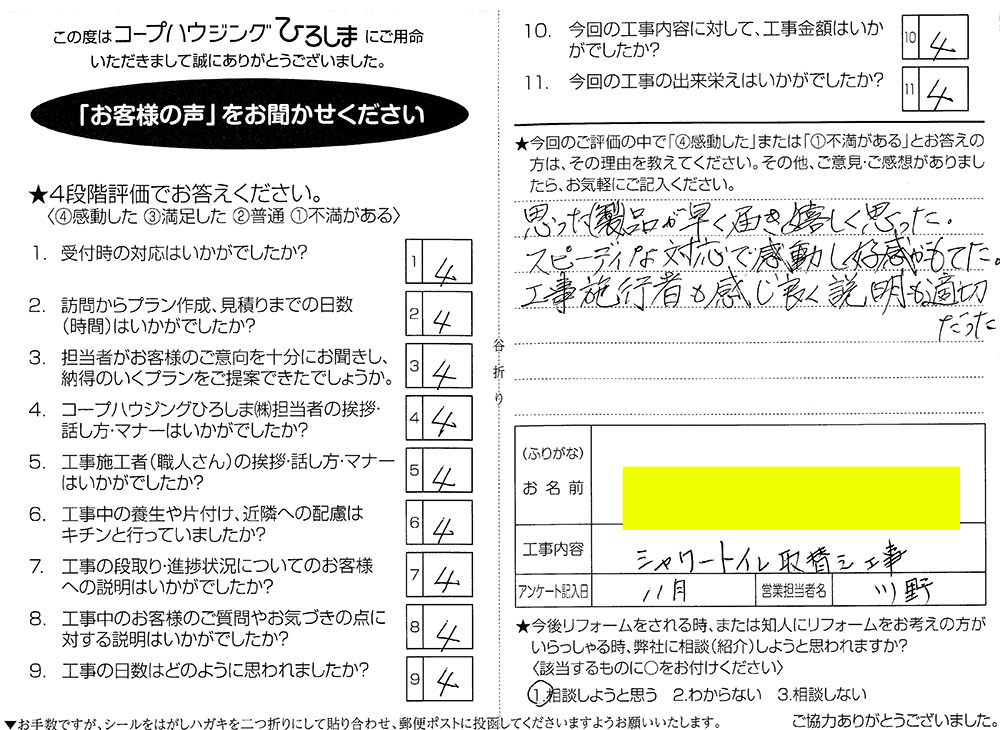 この度はコープハウジングひろしまにご用命
いただきまして誠にありがとうございました。
「お客様の声」をお聞かせください
★4段階評価でお答えください。
〈④感動した ③満足した ②普通 ①不満がある〉
1. 受付時の対応はいかがでしたか?
1 4
2. 訪問からプラン作成、見積りまでの日数
(時間)はいかがでしたか?
2 4
3. 担当者がお客様のご意向を十分にお聞きし、
納得のいくプランをご提案できたでしょうか。
3 4
4. コープハウジングひろしま㈱担当者の挨拶・
話し方・マナーはいかがでしたか?
4 4
5. 工事施工者(職人さん)の挨拶・話し方・マナー
はいかがでしたか?
5 4
6. 工事中の養生や片付け、近隣への配慮は
キチンと行っていましたか?
6 4
7. 工事の段取り・進捗状況についてのお客様
への説明はいかがでしたか?
7 4
8. 工事中のお客様のご質問やお気づきの点に
対する説明はいかがでしたか?
8 4
9. 工事の日数はどのように思われましたか?
9 4
▼お手数ですが、シールをはがしハガキを二つ折りにして貼り合わせ、郵便ポストに投函してくださいますようお願いいたします。
谷折り
10. 今回の工事内容に対して、工事金額はいか
がでしたか?
10 4
11. 今回の工事の出来栄えはいかがでしたか?
11 4
★今回のご評価の中で「④感動した」または「①不満がある」とお答えの
方は、その理由を教えてください。その他、ご意見・ご感想がありまし
たら、お気軽にご記入ください。
思った製品が早く届き嬉しく思った。
スピーディな対応で感動し好感がもてた。
工事施行者も感じ良く説明も適切
だった
(ふりがな)
お名前
工事内容 シャワートイレ取替シ工事
アンケート記入日 11月 営業担当者名 川野
★今後リフォームをされる時、または知人にリフォームをお考えの方が
いらっしゃる時、弊社に相談(紹介)しようと思われますか?
〈該当するものに○をお付けください〉
1.相談しようと思う 2.わからない 3.相談しない
ご協力ありがとうございました。